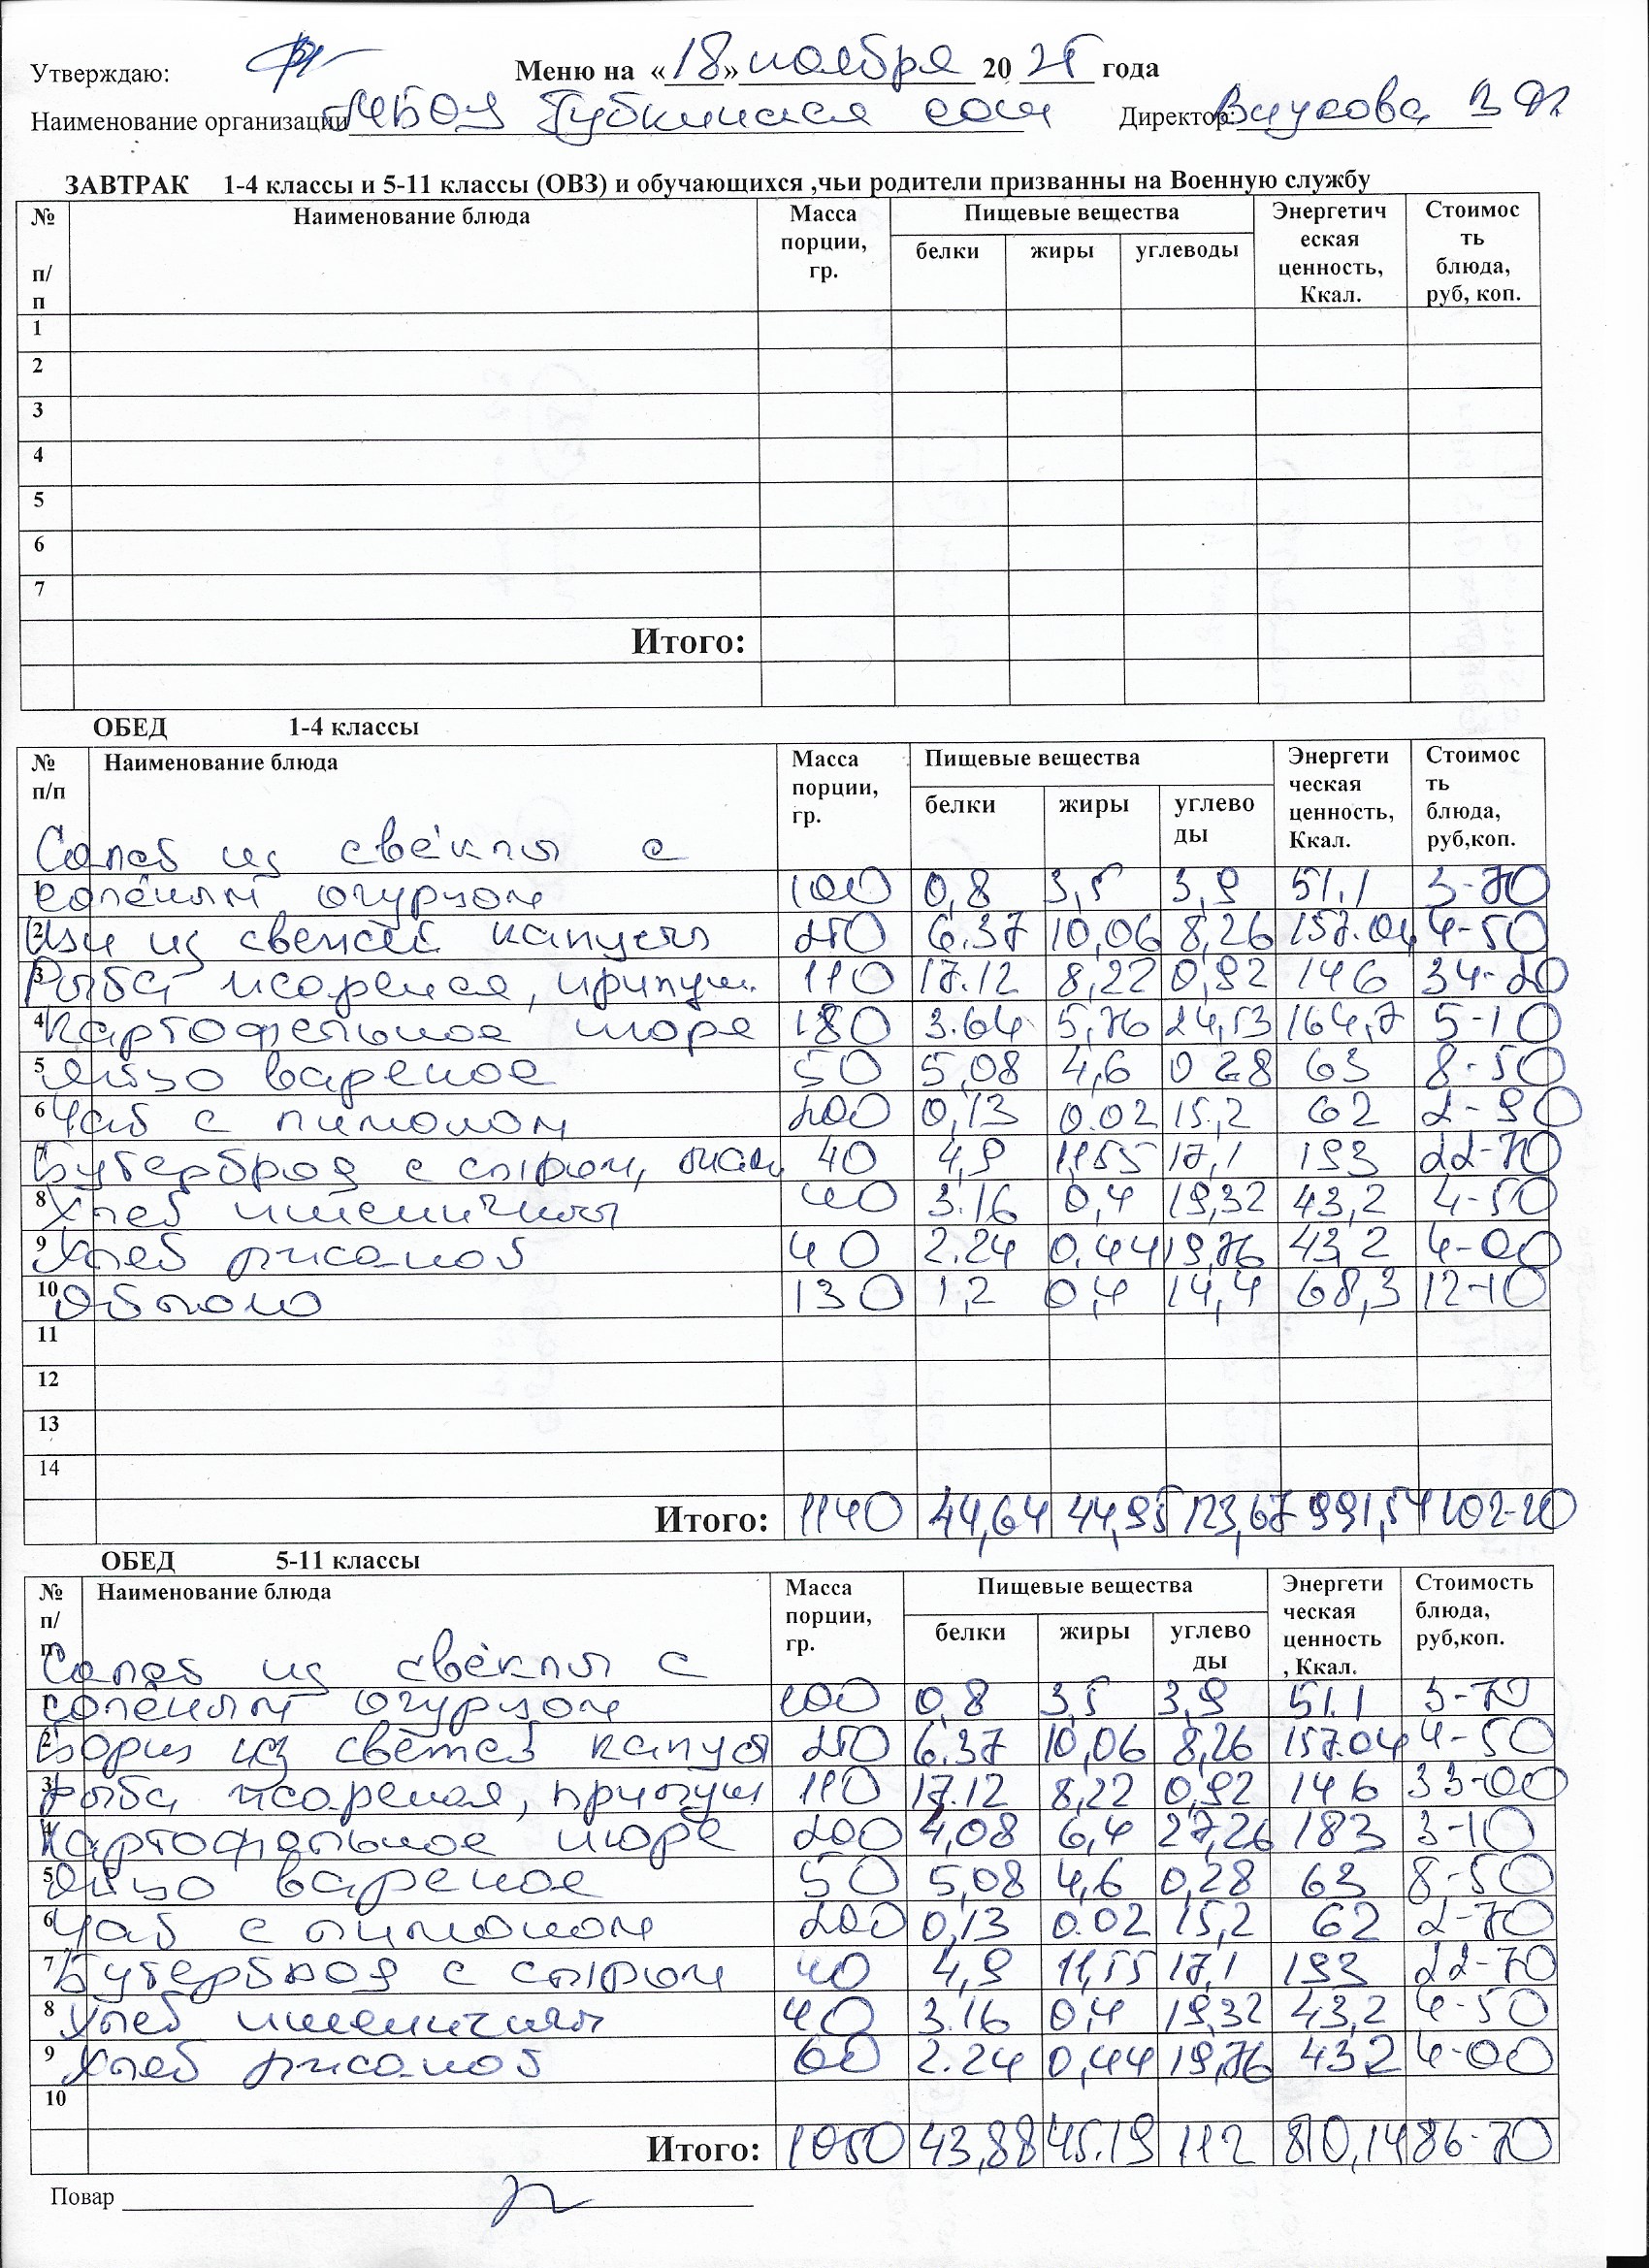 Утверждаю: Меню на «18» ноября 2025 года
Наименование организации МБОУ Губкинская сош Директор: Внукова
ЗАВТРАК 1-4 классы и 5-11 классы (ОВЗ) и обучающихся ,чьи родители призванны на Военную службу
№ п/п Наименование блюда Масса порции, гр. Пищевые вещества Энергетическая ценность, Ккал. Стоимость блюда, руб, коп.
белки жиры углеводы
1
2
3
4
5
6
7
Итого:
ОБЕД 1-4 классы
№ п/п Наименование блюда Масса порции, гр. Пищевые вещества Энергетическая ценность, Ккал. Стоимость блюда, руб,коп.
белки жиры углеводы
Салат из свёклы с
1 солёным огурцом 100 0,8 3,5 3,9 51,1 3-70
2 Щи из свежей капусты 250 6.37 10,06 8,26 157.04 4-50
3 Рыба жареная, припущ. 110 17.12 8,22 0,92 146 34-20
4 Картофельное пюре 180 3.64 5,76 24,53 164,7 5-10
5 Яйцо вареное 50 5,08 4,6 0 28 63 8-50
6 Чай с лимоном 200 0,13 0.02 15,2 62 2-90
7 Бутерброд с сыром, масл 40 4,9 11,55 17,1 193 22-70
8 Хлеб пшеничный 40 3.16 0,4 19,32 43,2 4-50
9 Хлеб ржаной 40 2.24 0,44 19,76 43,2 4-00
10 Яблоко 130 1,2 0,4 14,4 68,3 12-10
11
12
13
14
Итого: 1140 44,64 44,95 123,67 991,54 102-20
ОБЕД 5-11 классы
№ п/п Наименование блюда Масса порции, гр. Пищевые вещества Энергетическая ценность, Ккал. Стоимость блюда, руб,коп.
белки жиры углеводы
Салат из свёклы с
1 солёным огурцом 100 0,8 3,5 3,9 51.1 3-70
2 Борщ из свежей капуст 250 6.37 10,06 8,26 157.04 4-50
3 Рыба жареная, припущ 110 17.12 8,22 0,92 146 33-00
4 Картофельное пюре 200 4,08 6,4 27,26 183 3-10
5 Яйцо вареное 50 5,08 4,6 0,28 63 8-50
6 Чай с лимоном 200 0,13 0.02 15,2 62 2-70
7 Бутерброд с сыром 40 4,9 11,55 17,1 193 22-70
8 Хлеб пшеничный 40 3.16 0,4 19,32 43,2 4-50
9 Хлеб ржаной 60 2.24 0,44 19,76 43 2 4-00
10
Итого: 1050 43,88 45.19 112 810,14 86-70
Повар